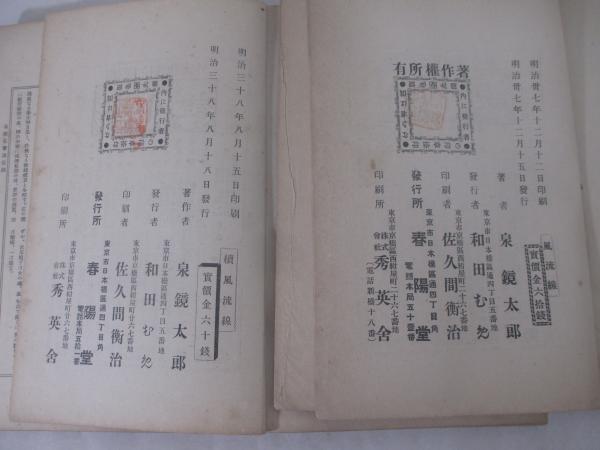 明治卅七年十二月十二日印刷
明治卅七年十二月十五日發行
著作權所有
風流線
實價金六拾錢
著者
泉鏡太郎
東京市日本橋區通四丁目五番地
發行者
和田むめ
東京市京橋區西紺屋町二十六七番地
印刷者
佐久間衡治
東京市日本橋區通四丁目角
發行所
春陽堂
電話本局五十一番
東京市京橋區西紺屋町二十六七番地
印刷所
株式會社
秀英舍
(電話新橋十八番)
明治三十八年八月十五日印刷
明治三十八年八月十八日發行
續風流線
實價金六十錢
著作者
泉鏡太郎
東京市日本橋區通四丁目五番地
發行者
和田むめ
東京市京橋區西紺屋町廿六七番地
印刷者
佐久間衡治
東京市日本橋區通四丁目角
發行所
春陽堂
電話本局五拾一番
東京市京橋區西紺屋町廿六七番地
印刷所
株式會社
秀英舍